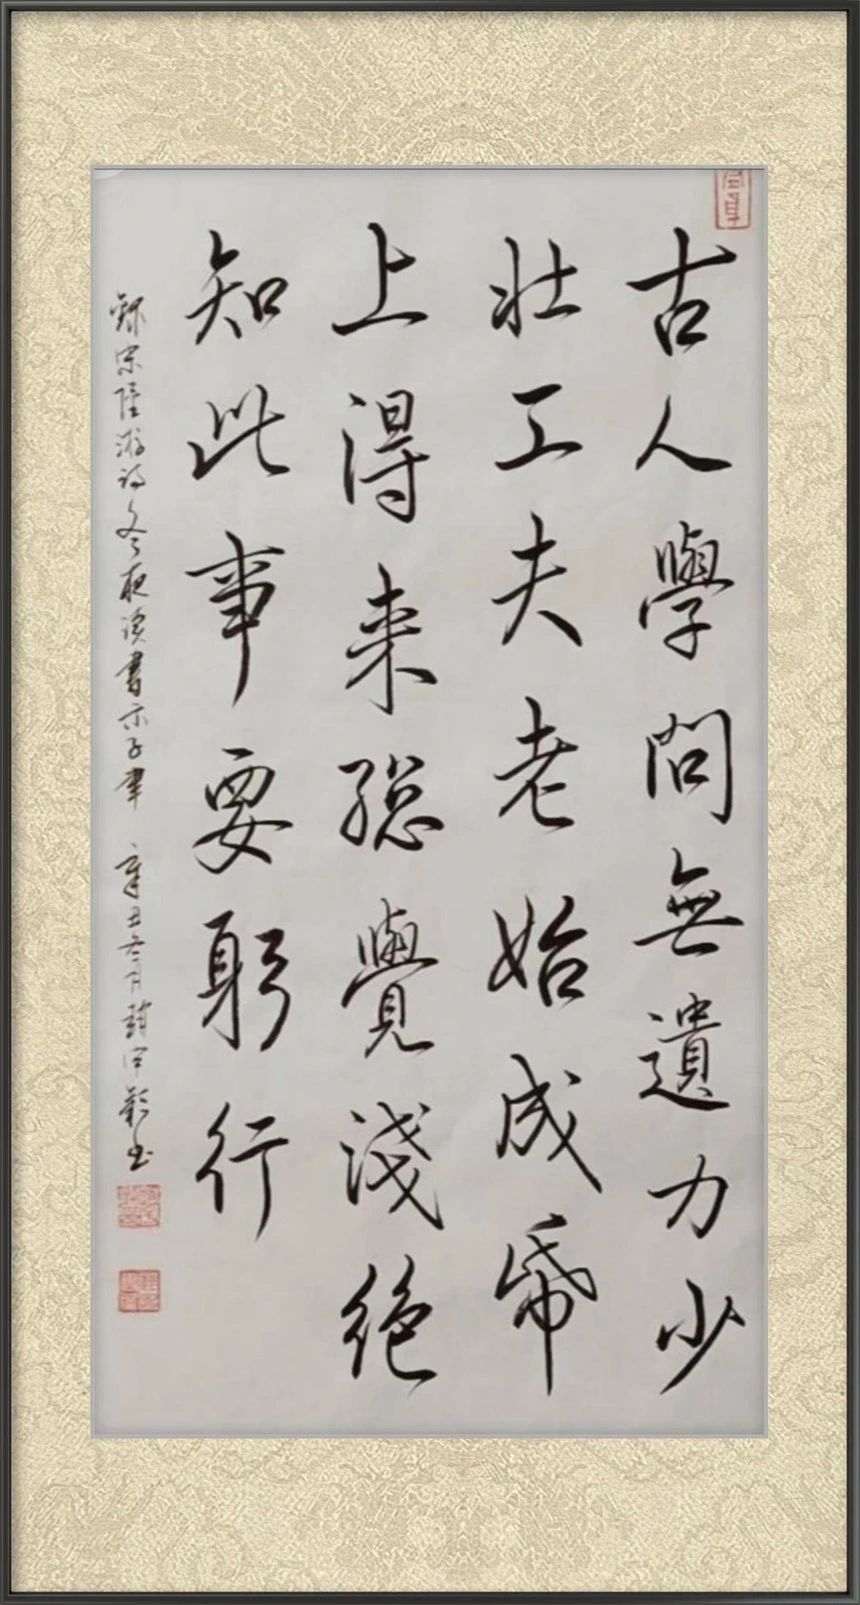 古人學問無遺力少
壮工夫老始成帋
上得来總覺淺絶
知此事要躬行
録宋陸游詩冬夜读書示子聿 辛丑冬月趙书